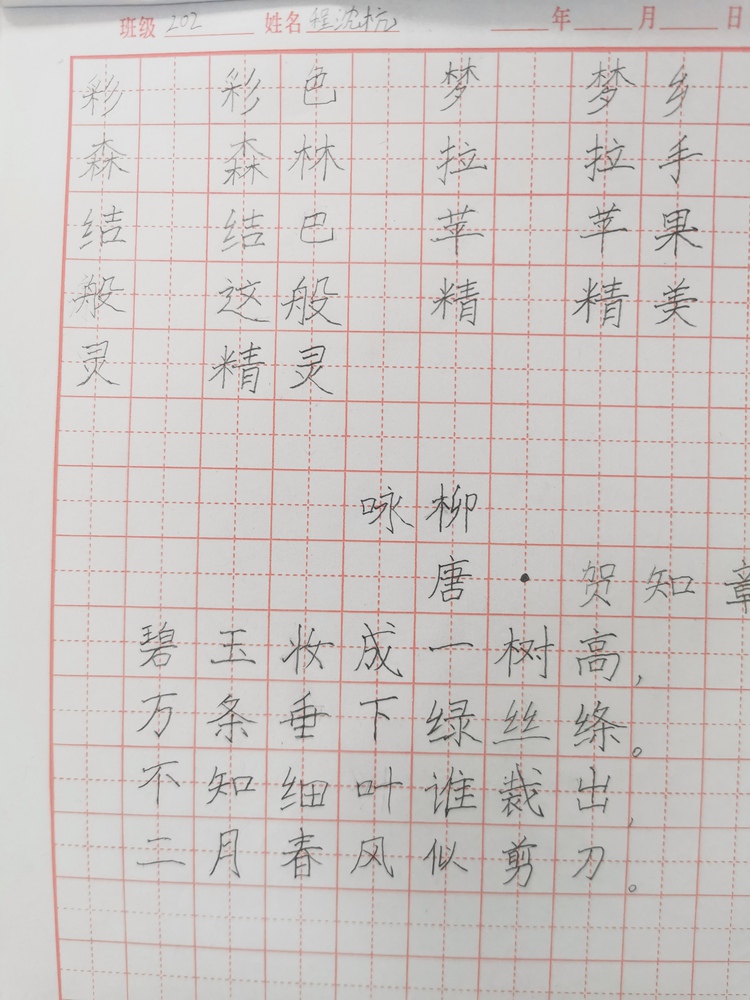 班级 202 姓名 程沈杭 年 月 日
彩 彩色 梦 梦乡
森 森林 拉 拉手
结 结巴 苹 苹果
般 这般 精 精美
灵 精灵
咏柳
唐·贺知章
碧玉妆成一树高,
万条垂下绿丝绦。
不知细叶谁裁出,
二月春风似剪刀。